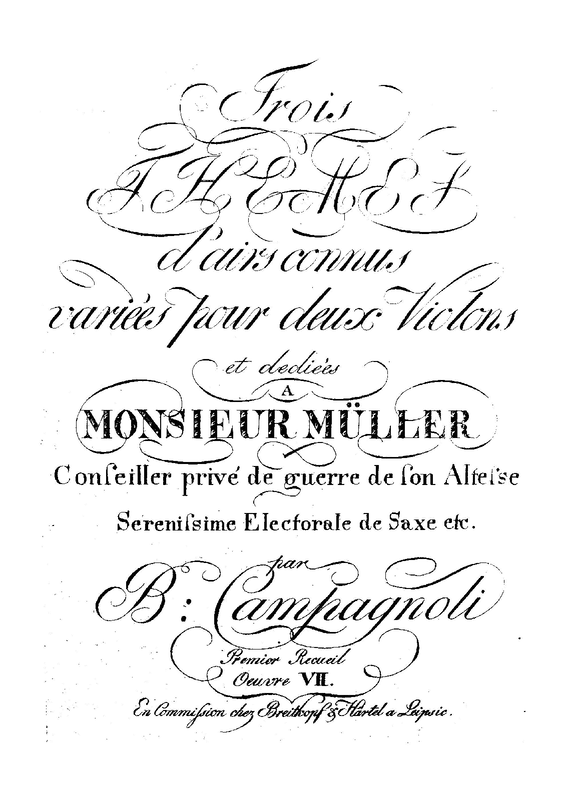 Trois
THEMES
d'airs connus
variées pour deux Violons
et dediées
A
MONSIEUR MÜLLER
Conſeiller privé de guerre de ſon Alteſse
Sereniſsime Electorale de Saxe etc.
par
B: Campagnoli
Premier Recueil
Oeuvre VII.
En Commiſsion chez Breitkopf & Härtel a Leipsic.